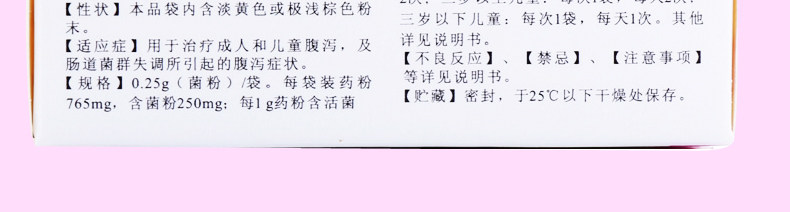 【性状】本品袋内含淡黄色或极浅棕色粉
末。
【适应症】用于治疗成人和儿童腹泻，及
肠道菌群失调所引起的腹泻症状。
【规格】0.25g（菌粉）/袋。每袋装药粉
765mg，含菌粉250mg；每1g药粉含活菌
三岁以下儿童：每次1袋，每天1次。其他
详见说明书。
【不良反应】、【禁忌】、【注意事项】
等详见说明书。
【贮藏】密封，于25℃以下干燥处保存。